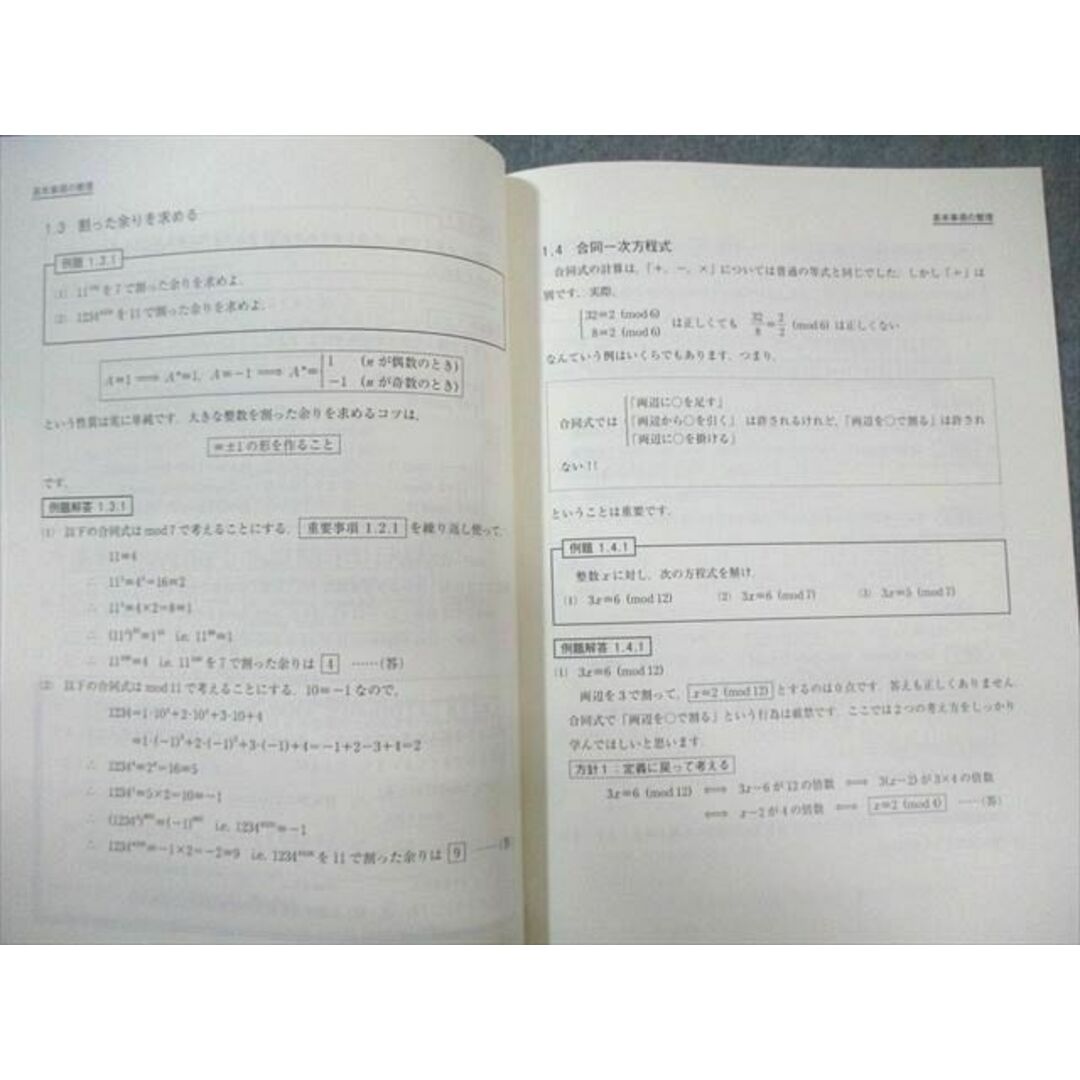 基本事項の整理
1.3 割った余りを求める
例題 1.3.1
(1) 11 を7で割った余りを求めよ.
(2) 1234 を11で割った余りを求めよ.
A≡1 ⟹ Aⁿ≡1, A≡−1 ⟹ Aⁿ≡ 1 (nが偶数のとき)
−1 (nが奇数のとき)
という性質は実に単純です. 大きな整数を割った余りを求めるコツは,
≡±1の形を作ること
です.
例題解答 1.3.1
(1) 以下の合同式は mod 7 で考えることにする. 重要事項 1.2.1 を繰り返し使って,
11≡4
∴ 11²≡4²=16≡2
∴ 11³≡4×2=8≡1
∴ i.e. ≡1
∴ ≡4 i.e. を7で割った余りは 4 ……(答)
(2) 以下の合同式は mod 11 で考えることにする. 10≡−1 なので,
1234=1·10³+2·10²+3·10+4
≡1·(−1)³+2·(−1)²+3·(−1)+4=−1+2−3+4=2
∴ 1234⁴≡2⁴=16≡5
∴ ≡5×2=10≡−1
∴ i.e. ≡−1
∴ ≡−1×2=−2≡9 i.e. を11で割った余りは 9 ……(答
基本事項の整理
1.4 合同一次方程式
合同式の計算は,「+, −, ×」については普通の等式と同じでした. しかし「÷」は
別です. 実際,
32≡2 (mod 6)
8≡2 (mod 6) は正しくても 32/8≡2/2 (mod 6) は正しくない
なんていう例はいくらでもあります. つまり,
「両辺に○を足す」
合同式では 「両辺から○を引く」 は許されるけれど,「両辺を○で割る」は許され
「両辺に○を掛ける」
ない!!
ということは重要です.
例題 1.4.1
整数 x に対し, 次の方程式を解け.
(1) 3x≡6 (mod 12) (2) 3x≡6 (mod 7) (3) 3x≡5 (mod 7)
例題解答 1.4.1
(1) 3x≡6 (mod 12)
両辺を3で割って, x≡2 (mod 12) とするのは0点です. 答えも正しくありません.
合同式で「両辺を○で割る」という行為は厳禁です. ここでは2つの考え方をしっかり
学んでほしいと思います.
方針1:定義に戻って考える
3x≡6 (mod 12) ⟺ 3x−6が12の倍数 ⟺ 3(x−2)が3×4の倍数
⟺ x−2が4の倍数 ⟺ x≡2 (mod 4) ……(答)